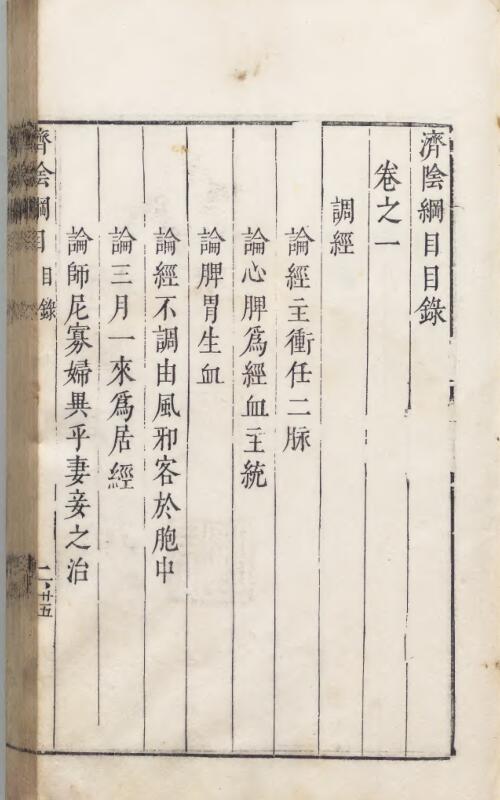 濟陰綱目目錄
卷之一
調經
論經主衝任二脉
論心脾爲經血主統
論脾胃生血
論經不調由風邪客於胞中
論三月一來爲居經
論師尼寡婦異乎妻妾之治
濟陰綱目 目錄